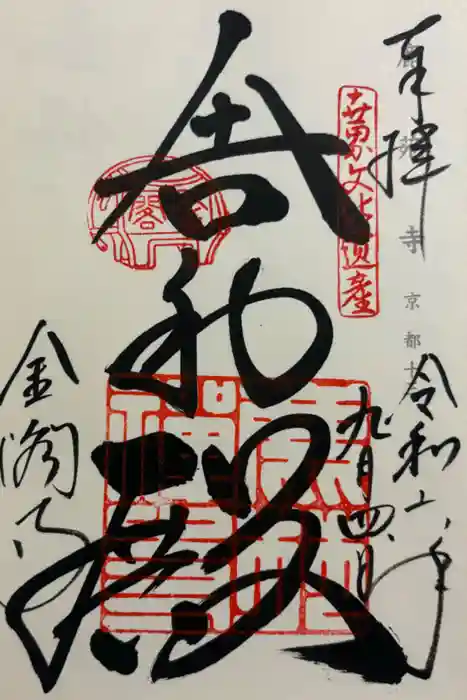 奉拝
鹿苑寺 京都
世界文化遺産
令和六年
九月四日
舎利殿
金閣寺